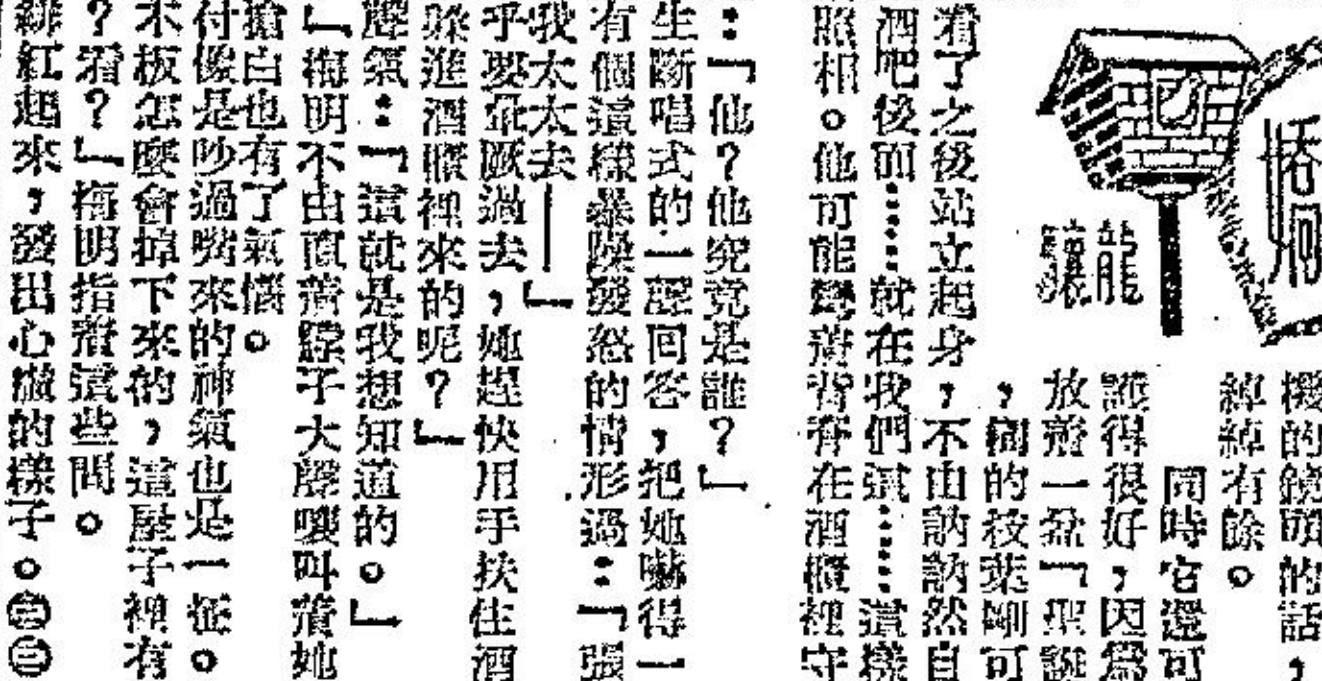 龍驤
機的鏡頭的話,
綽綽有餘。
同時它還可
護得很好,因為
放着一盆「聖誕
,樹的枝葉剛可
着了之後站立起身,不由訥訥然自
酒吧後面……就在我們這……這樣
照相。他可能彎着背脊在酒櫃裡守
:「他?他究竟是誰?」
生斷唱式的一聲回答,把她嚇得一
有個這樣暴躁發怒的情形過:「張
我太太去——」
乎要暈厥過去,她趕快用手扶住酒
躲進酒櫃裡來的呢?」
聲氣:「這就是我想知道的。」
」梅明不由直着脖子大聲嚷叫着她
搶白也有了氣惱。
付像是吵過嘴來的神氣也是一怔。
木板怎麼會掉下來的,這屋子裡有
?着?」梅明指着這些問。
緋紅起來,發出心的樣子。㊁㊂